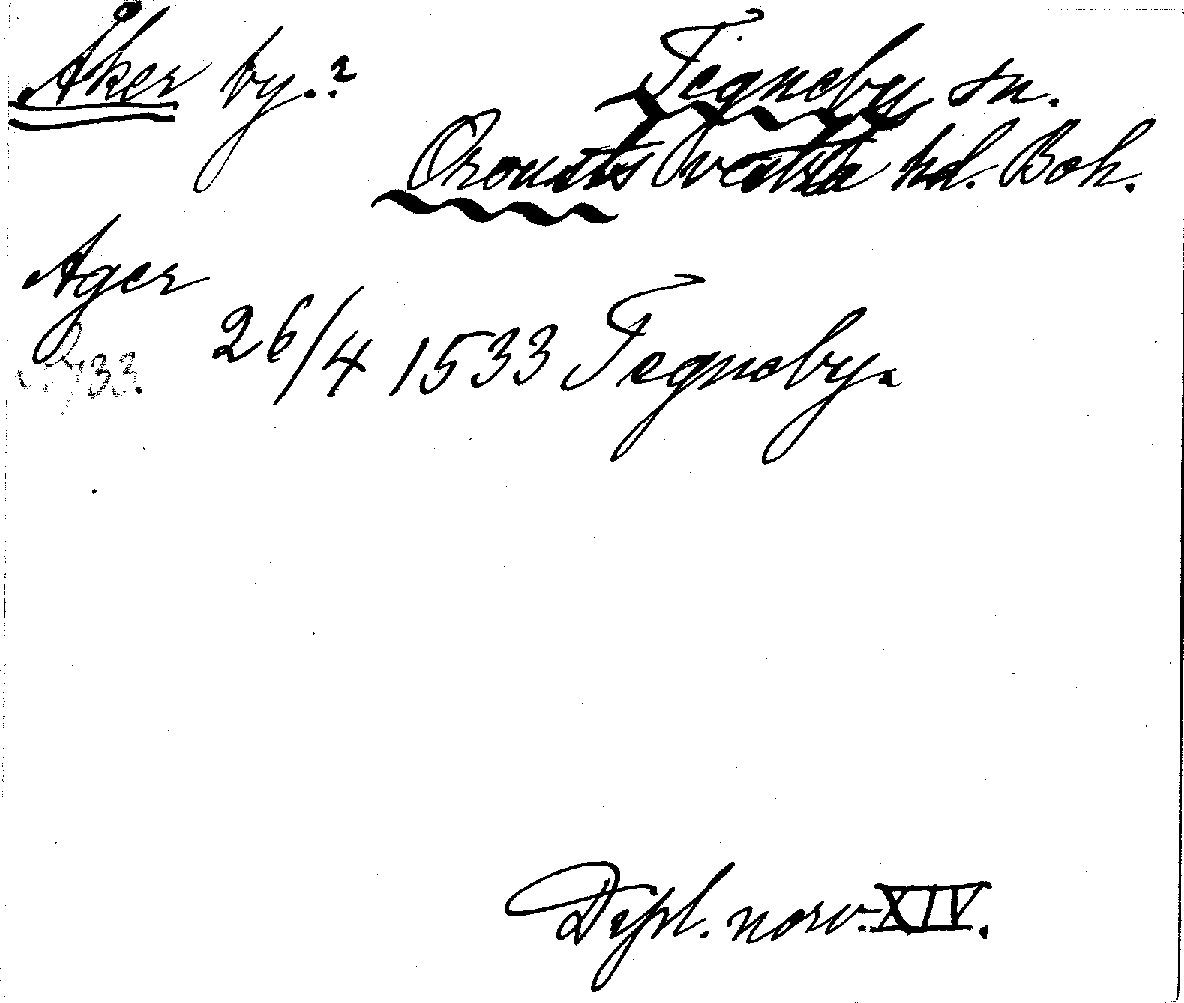 Åker by.? Tegneby sn.
Orousts vestra hd. Boh.
Ager
26/4 1533 Tegneby.
33.
Dipl. norv. XIV.